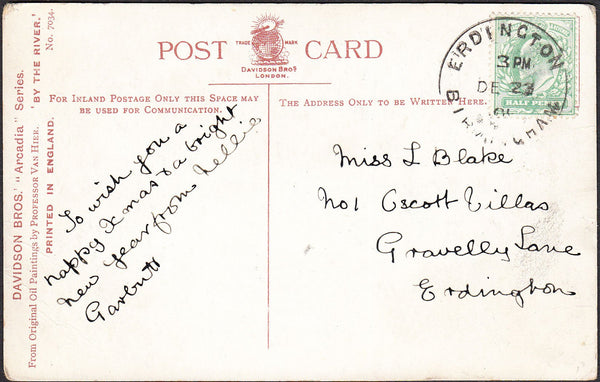 POST CARD
TRADE MARK
DAVIDSON BROS.
LONDON.
FOR INLAND POSTAGE ONLY THIS SPACE MAY
BE USED FOR COMMUNICATION.
THE ADDRESS ONLY TO BE WRITTEN HERE.
DAVIDSON BROS.' "Arcadia" Series.
From Original Oil Paintings by PROFESSOR VAN HIER.
PRINTED IN ENGLAND.
'BY THE RIVER.'
No. 7034.
To wish you a
happy Xmas & a bright
new year from Nellie
Garbutt
Miss L Blake
No 1 Oscott Villas
Gravelly Lane
Erdington
ERDINGTON
3 PM
DE 23
HALF PENNY